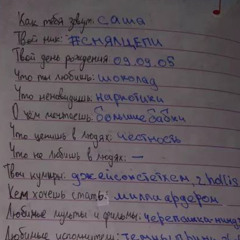 Как тебя зовут: саша
Твой ник: #СНЯЛЦЕПИ
Твой день рождения: 09.09.05
Что ты любишь: шоколад
Что ненавидишь: наркотики
О чём мечтаешь: большие бабки
Что ценишь в людях: честность
Что не любишь в людях: —
Твои кумиры: джейсонстетхем, 2
Кем хочешь стать: миллиардером
Любимые мульты и фильмы: черепашки-нинд
Любимые исполнители: